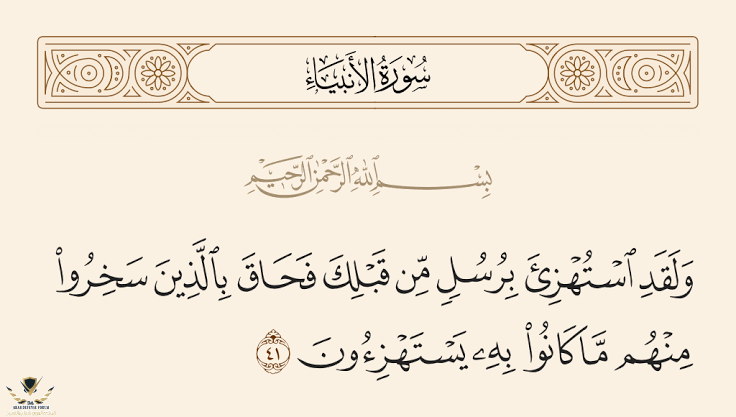 سُورَةُ الأَنبِيَاءِ
بِسْمِ ٱللَّهِ ٱلرَّحْمَٰنِ ٱلرَّحِيمِ
وَلَقَدِ ٱسْتُهْزِئَ بِرُسُلٍ مِّن قَبْلِكَ فَحَاقَ بِٱلَّذِينَ سَخِرُوا۟
مِنْهُم مَّا كَانُوا۟ بِهِۦ يَسْتَهْزِءُونَ ٤١
ARAB DEFENSE FORUM